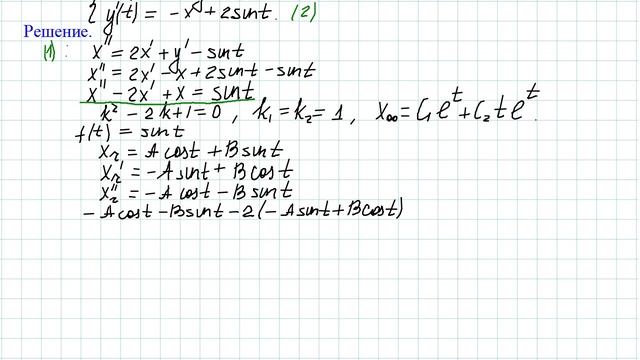 { y'(t) = -x + 2sint. (2)
Решение.
(1): x'' = 2x' + y' - sint
x'' = 2x' - x + 2sint - sint
x'' - 2x' + x = sint
k² - 2k + 1 = 0, k₁ = k₂ = 1, x₀₀ = C₁e^t + C₂te^t.
f(t) = sint
xᵣ = A cost + B sint
xᵣ' = -A sint + B cost
xᵣ'' = -A cost - B sint
-A cost - B sint - 2(-A sint + B cost)